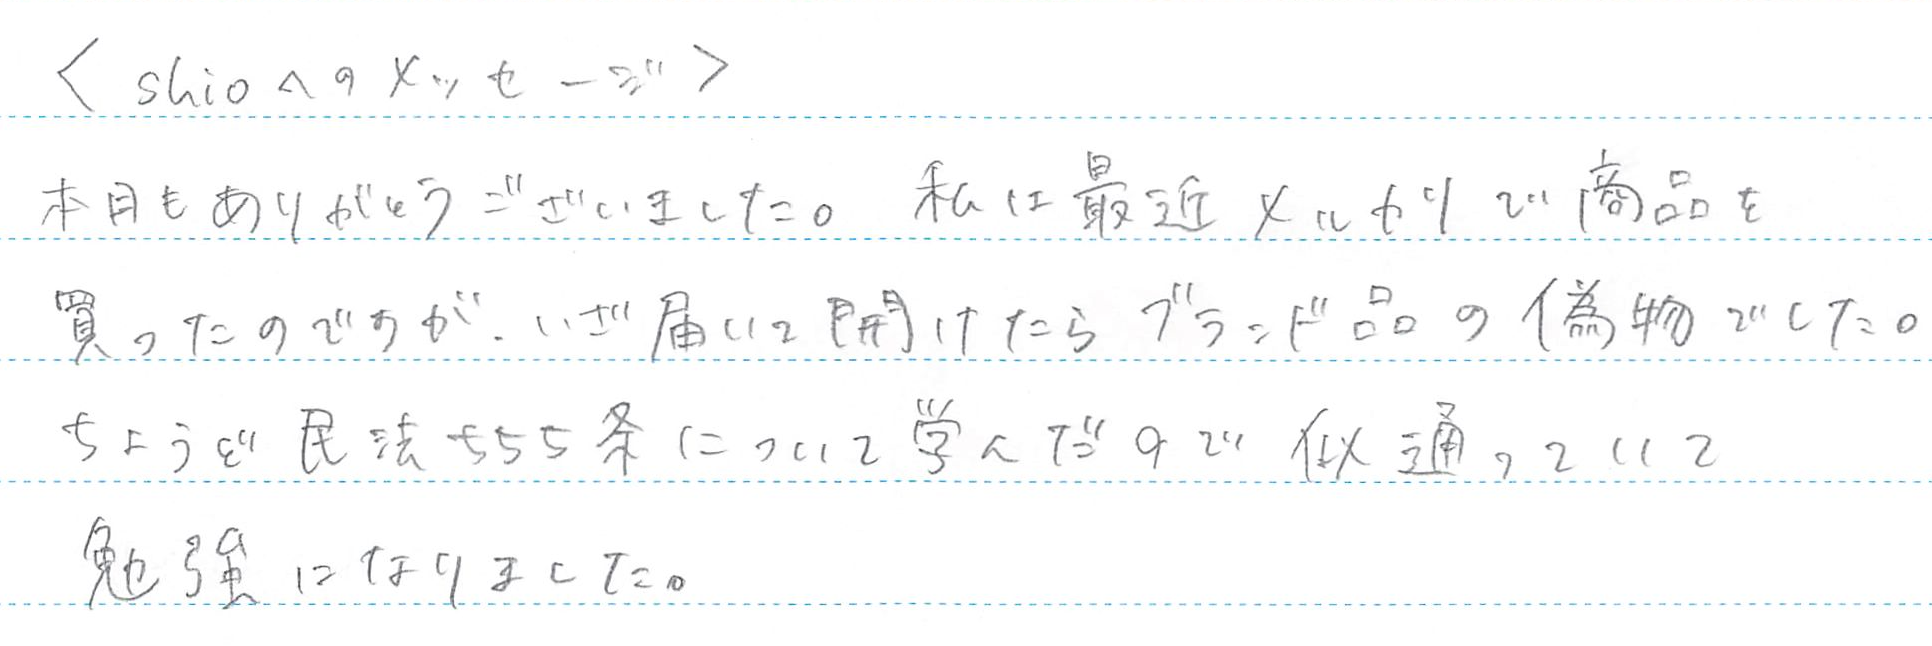 <shioへのメッセージ>
本日もありがとうございました。 私は最近メルカリで商品を
買ったのですが、いざ届いて開けたらブランド品の偽物でした。
ちょうど民法555条について学んだので似通っていて
勉強になりました。